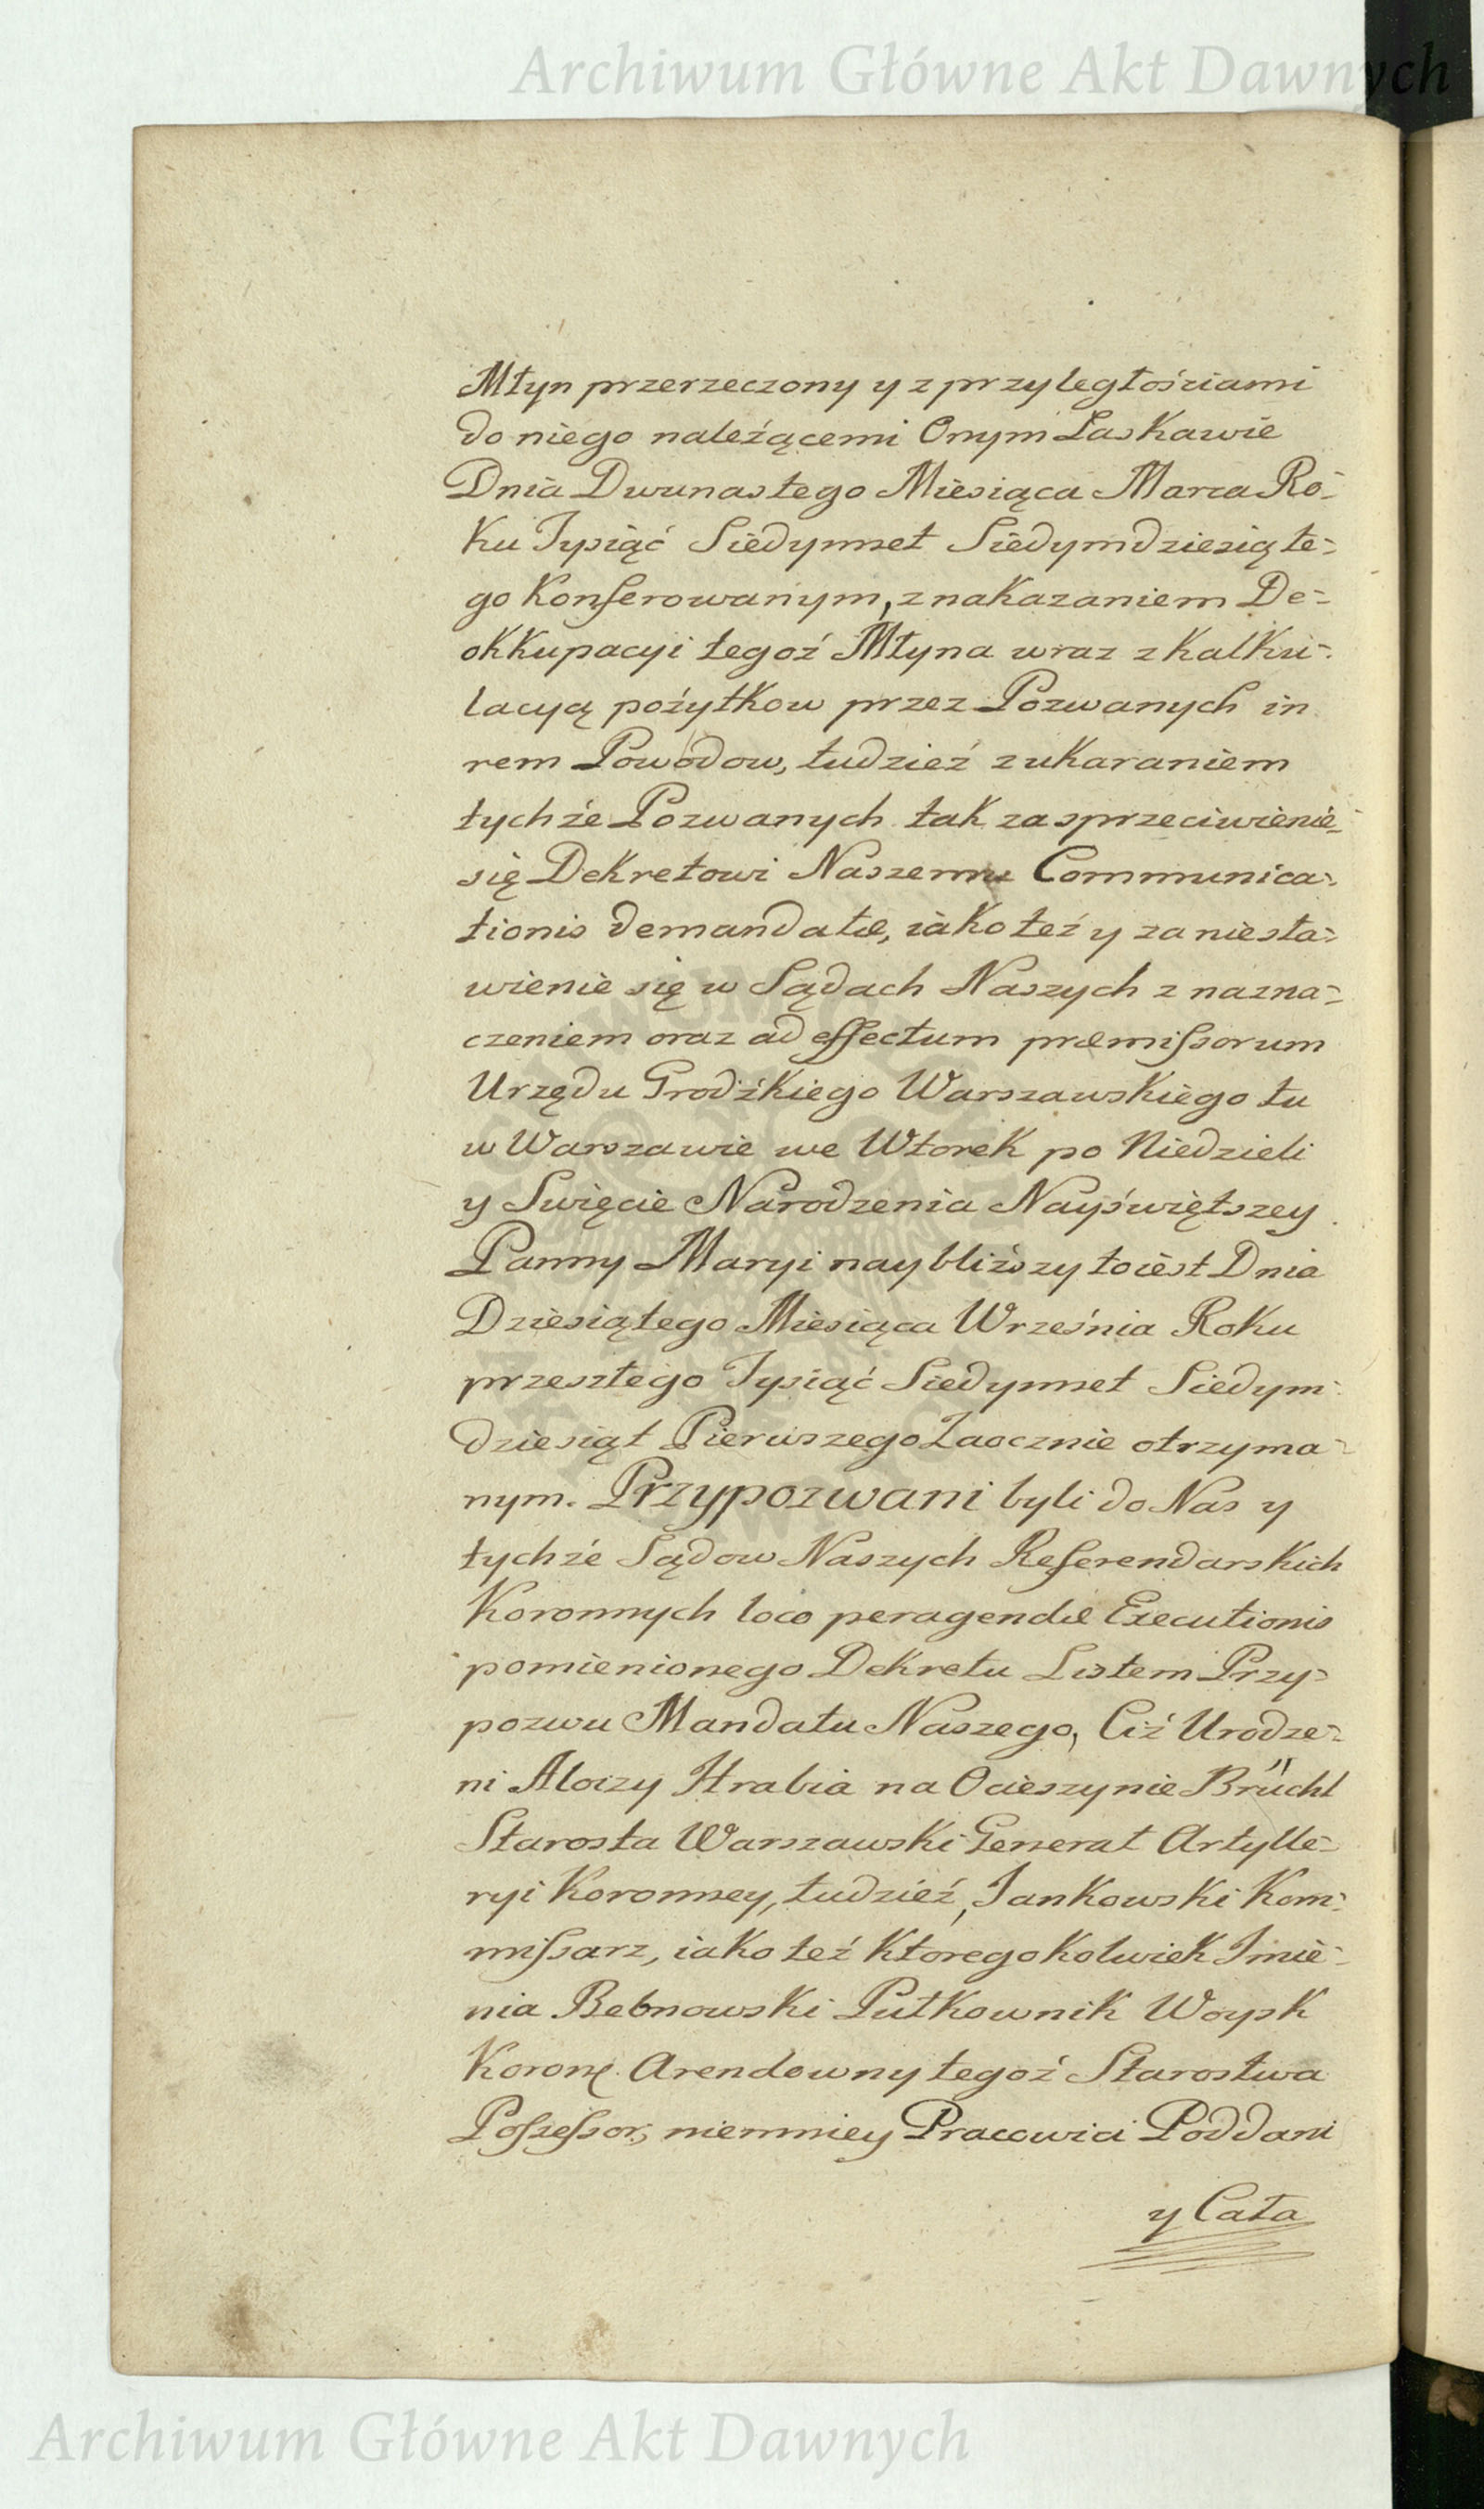 Archiwum Główne Akt Dawnych
Młyn przerzeczony y z przyległościami
do niego należącemi Onym Łaskawie
Dnia Dwunastego Miesiąca Marca Ro-
ku Tysiąć Siedymset Siedymdziesiąte=
go Konferowanym, z nakazaniem De=
okkupacyi tegoż Młyna wraz z kalku=
lacyą pożytkow przez Pozwanych in
rem Powodow, tudzież z ukaraniem
tychże Pozwanych tak za sprzeciwienie
się Dekretowi Naszemu Communica=
tionis demandatæ, iako też y za niesta=
wienie się w Sądach Naszych z nazna=
czeniem oraz ad effectum præmissorum
Urzędu Grodźkiego Warszawskiego tu
w Warszawie we Wtorek po Niedzieli
y Swięcie Narodzenia Nayświętszey
Panny Maryi naybliższy to iest Dnia
Dziesiątego Miesiąca Września Roku
przeszłego Tysiąć Siedymset Siedym=
dziesiąt Pierwszego Zaocznie otrzyma=
nym. Przypozwani byli do Nas y
tychże Sądow Naszych Referendarskich
Koronnych loco peragendæ Executionis
pomienionego Dekretu Listem Przy=
pozwu Mandatu Naszego, Ciż Urodze=
ni Aloizy Hrabia na Ocieszynie Brüchl
Starosta Warszawski Generał Artylle=
ryi Koronney, tudzież, Jankowski Kom=
missarz, iako też ktoregokolwiek Imie=
nia Bebnowski Pułkownik Woysk
Koron. Arendowny tegoż Starostwa
Possessor, niemniey Pracowici Poddani
y Cała
Archiwum Główne Akt Dawnych